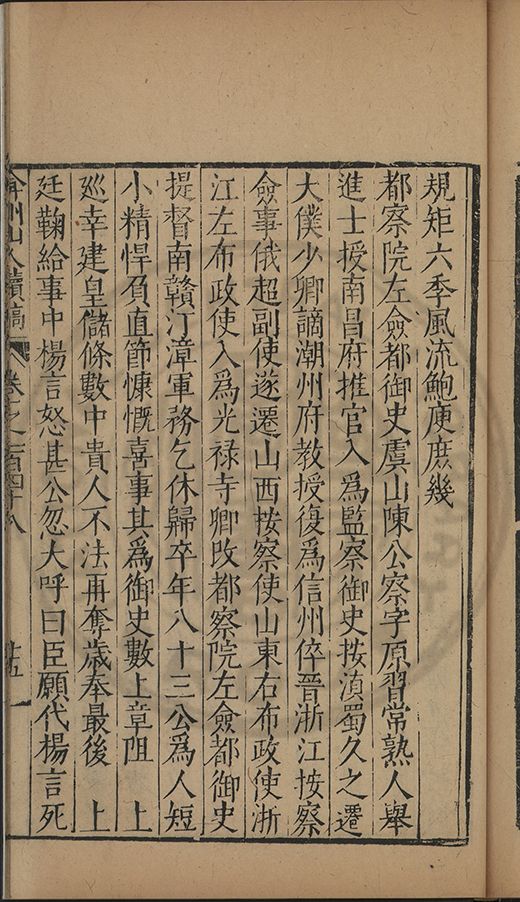 規矩六季風流鮑庾庶幾
都察院左僉都御史虞山陳公察字原習常熟人舉
進士授南昌府推官入爲監察御史按滇蜀久之遷
大僕少卿謫潮州府教授復爲信州倅晉浙江按察
僉事俄超副使遂遷山西按察使山東右布政使浙
江左布政使入爲光祿寺卿改都察院左僉都御史
提督南贛汀漳軍務乞休歸卒年八十三公爲人短
小精悍負直節慷慨喜事其爲御史數上章阻 上
廵幸建皇儲條數中貴人不法再奪歲奉最後 上
廷鞠給事中楊言怒甚公忽大呼曰臣願代楊言死
弇州山人續稿 卷之一百四十八 十五